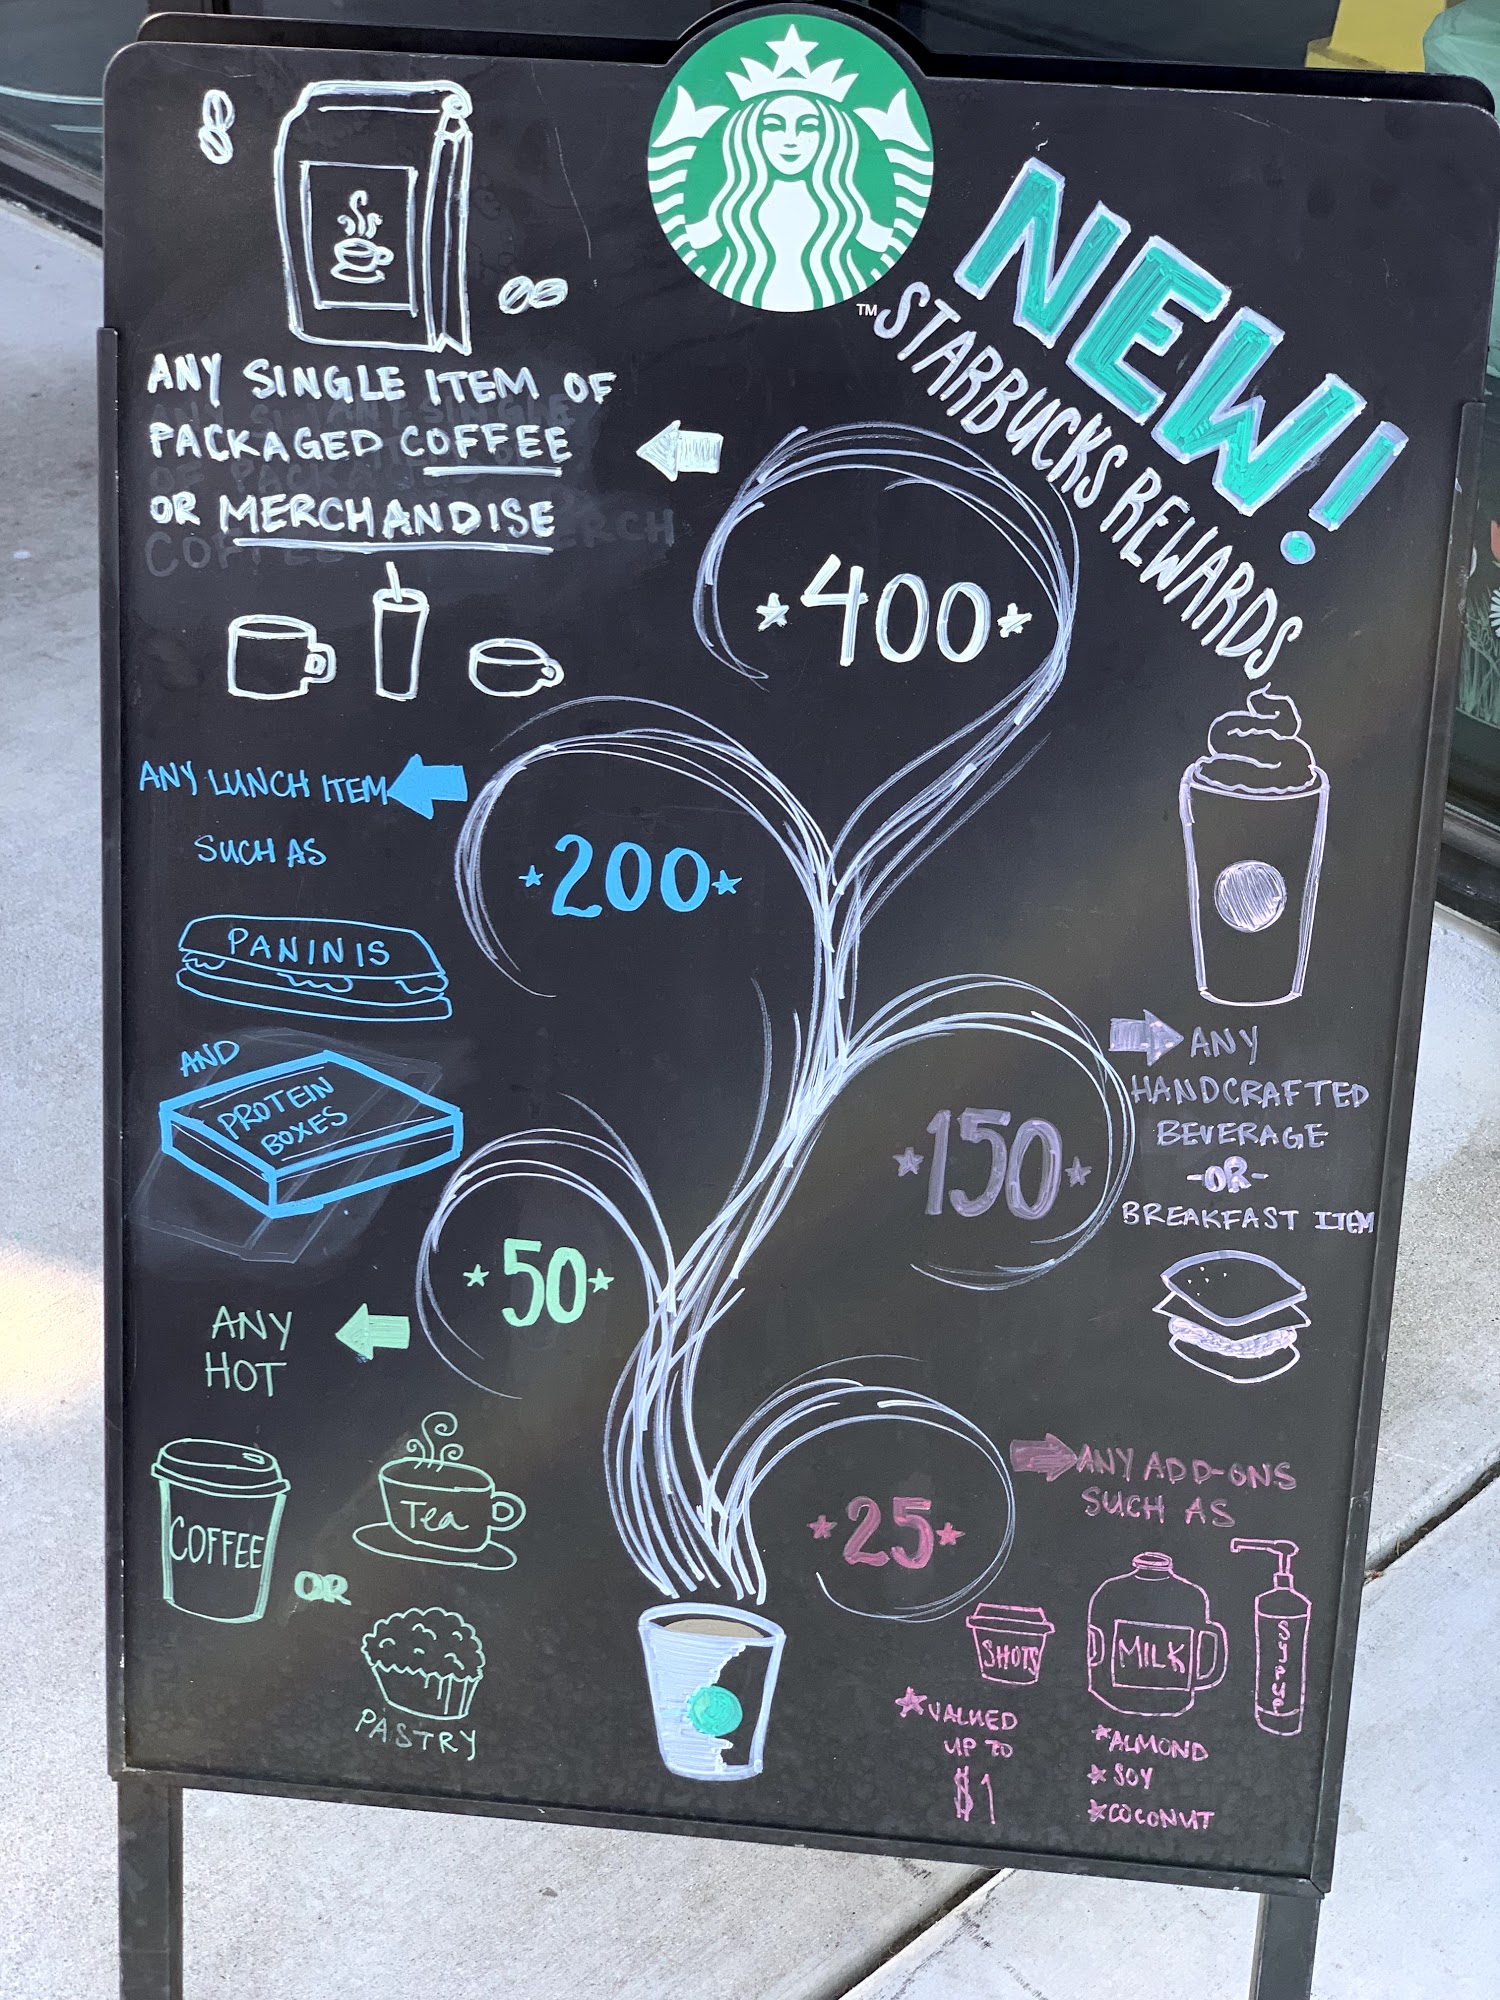 NEW!
STARBUCKS REWARDS
TM
ANY SINGLE ITEM OF
PACKAGED COFFEE
OR MERCHANDISE
★400★
ANY LUNCH ITEM
SUCH AS
PANINIS
AND
PROTEIN
BOXES
★200★
ANY
HANDCRAFTED
BEVERAGE
-OR-
BREAKFAST ITEM
★150★
★50★
ANY
HOT
COFFEE
Tea
OR
PASTRY
★25★
ANY ADD-ONS
SUCH AS
SHOTS
MILK
SYRUP
★VALUED
UP TO
$1
★ALMOND
★SOY
★COCONUT